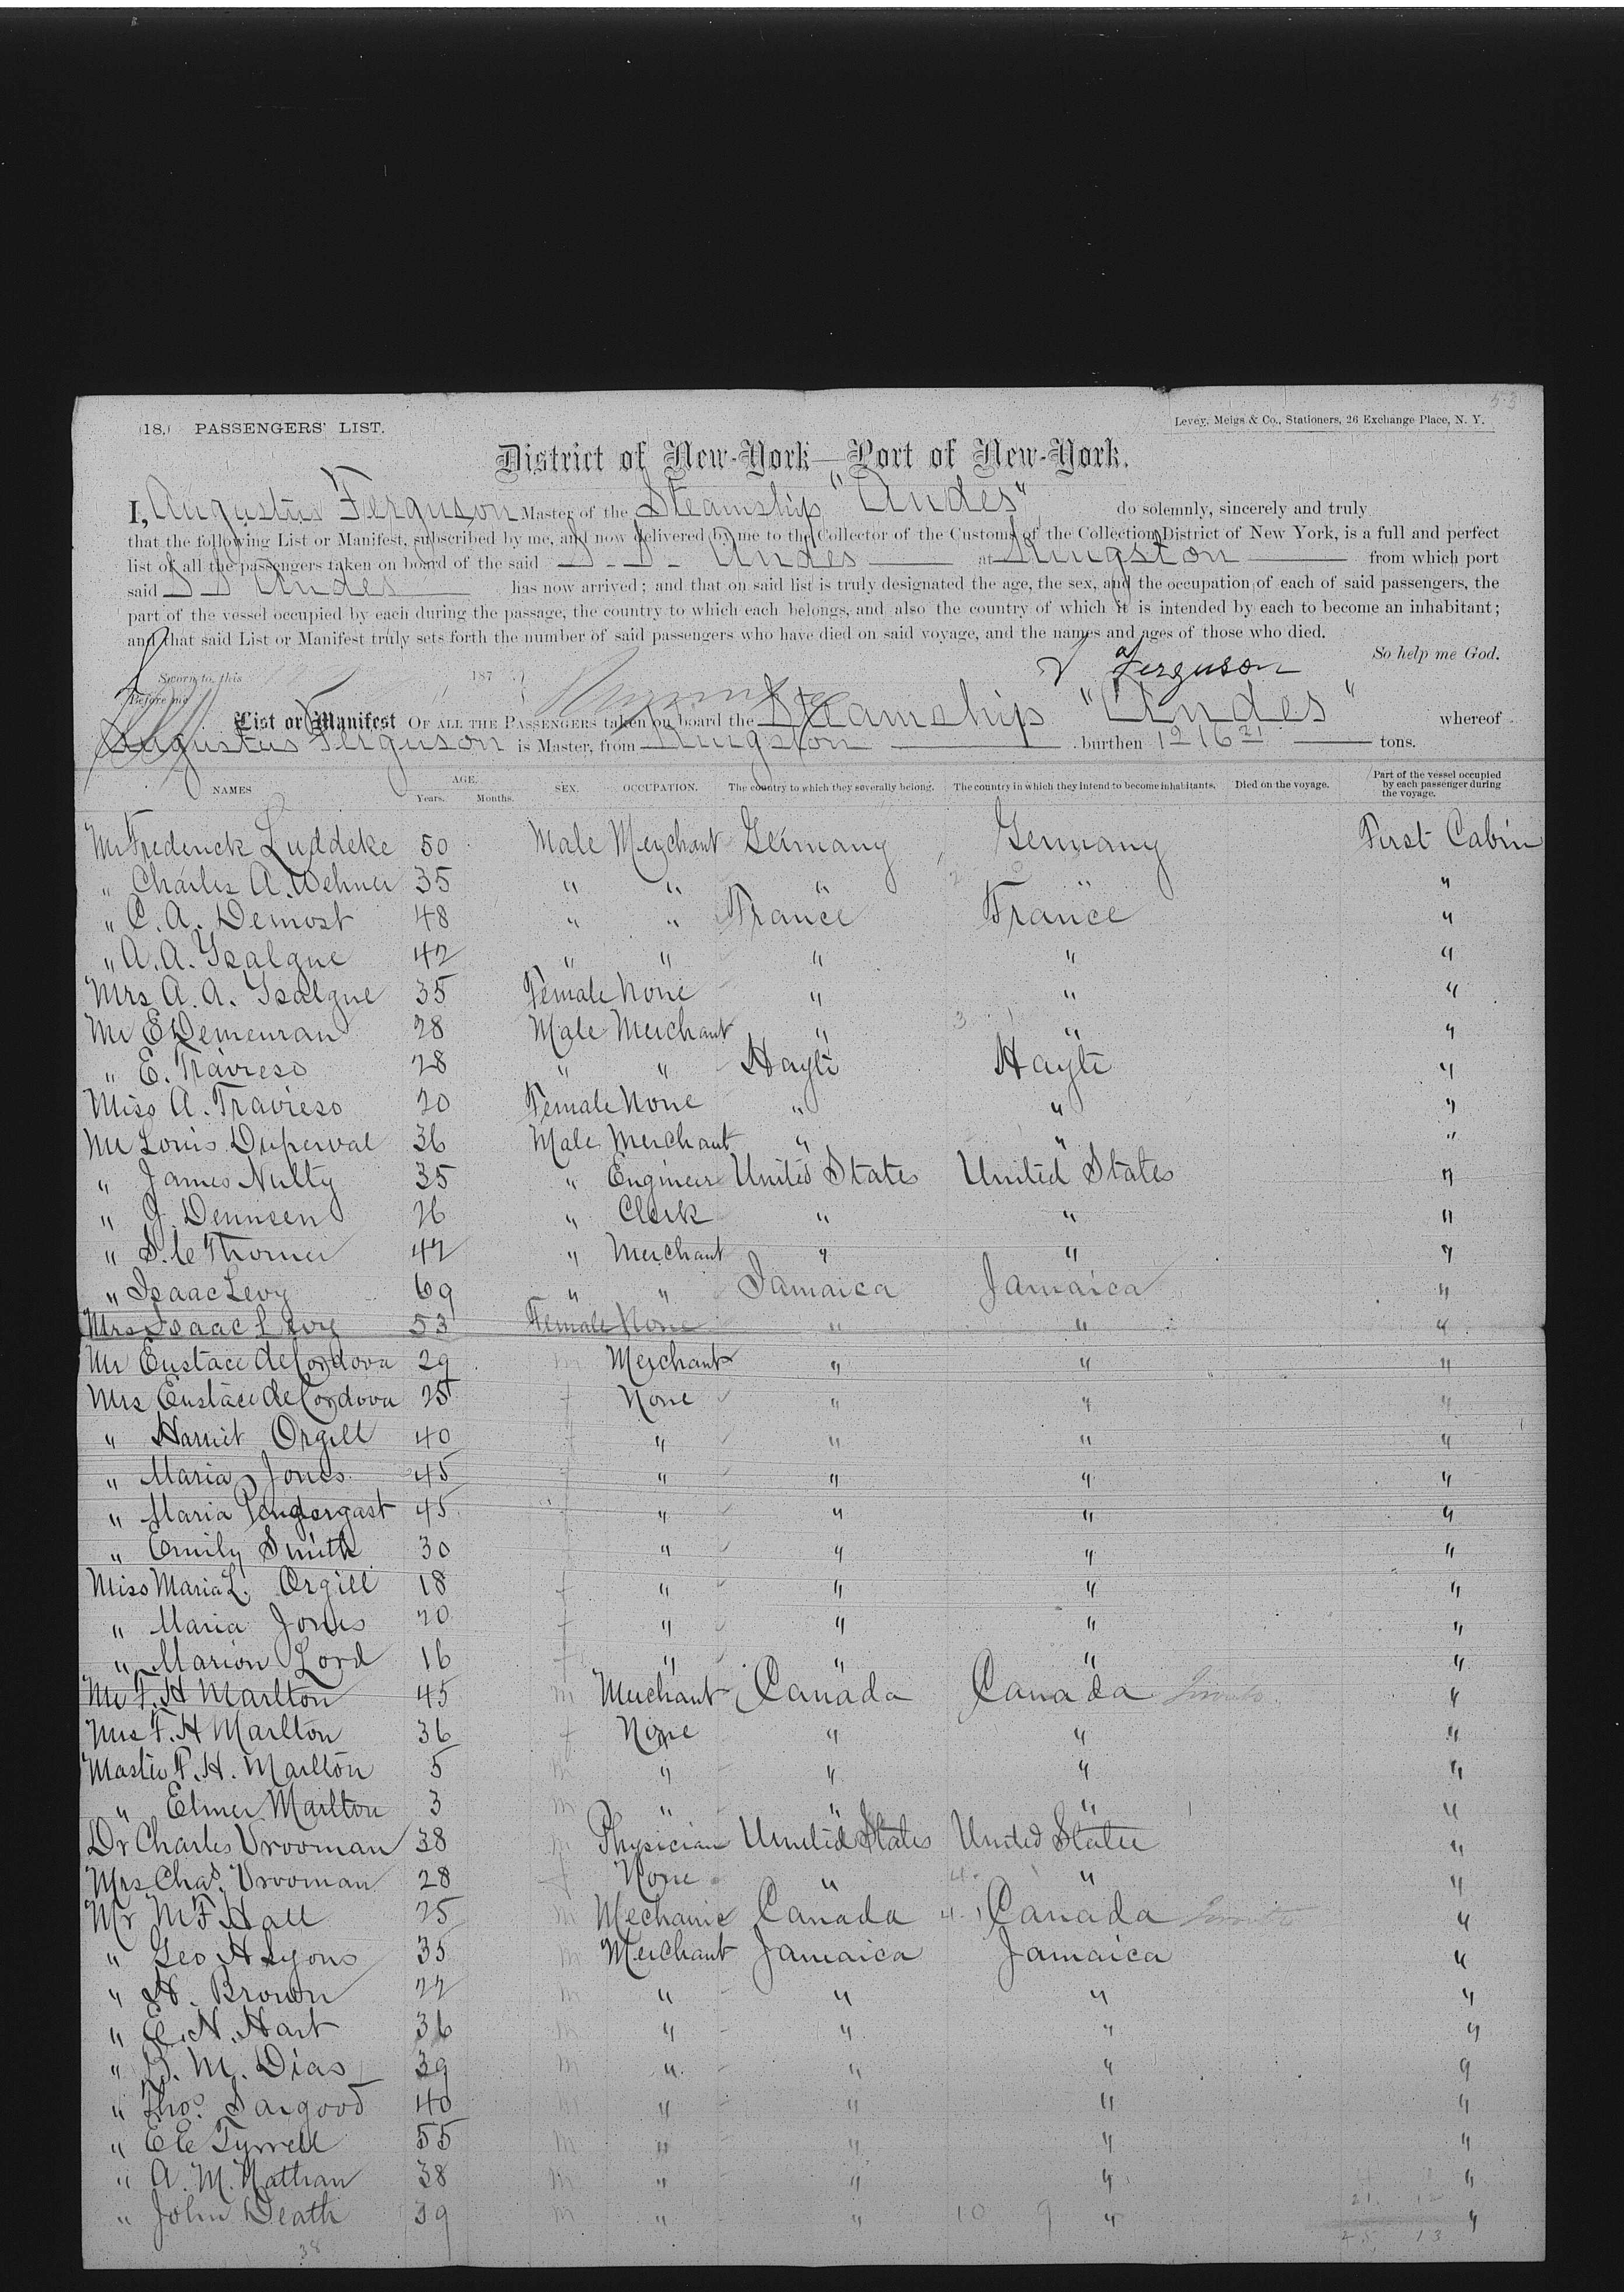 53
(18.) PASSENGERS' LIST.
Levey, Meigs & Co., Stationers, 26 Exchange Place, N. Y.
District of New-York—Port of New-York.
I, Augustus Ferguson Master of the Steamship "Andes" do solemnly, sincerely and truly
that the following List or Manifest, subscribed by me, and now delivered by me to the Collector of the Customs of the Collection District of New York, is a full and perfect
list of all the passengers taken on board of the said S. S. Andes at Kingston from which port
said S S Andes has now arrived; and that on said list is truly designated the age, the sex, and the occupation of each of said passengers, the
part of the vessel occupied by each during the passage, the country to which each belongs, and also the country of which it is intended by each to become an inhabitant;
and that said List or Manifest truly sets forth the number of said passengers who have died on said voyage, and the names and ages of those who died.
So help me God.
Sworn to, this 187
A Ferguson
Before me
List or Manifest OF ALL THE PASSENGERS taken on board the Steamship "Andes" whereof
Augustus Ferguson is Master, from Kingston burthen 1216 21 tons.
NAMES AGE. Years. Months. SEX. OCCUPATION. The country to which they severally belong. The country in which they intend to become inhabitants. Died on the voyage. Part of the vessel occupied by each passenger during the voyage.
Mr Frederick Luddeke 50 Male Merchant Germany Germany First Cabin
" Charles A. Wehner 35 " " " " "
" C. A. Demost 48 " " France France "
" A. A. Ysalgue 42 " " " " "
Mrs A. A. Ysalgue 35 Female None " " "
Mr E Demenran 28 Male Merchant " " "
" E. Travieso 28 " " Hayti Hayti "
Miss A. Travieso 20 Female None " " "
Mr Louis Duperval 36 Male Merchant " " "
" James Nulty 35 " Engineer United States United States "
" J. Dennsen 26 " Clerk " " "
" S. C Thorner 42 " Merchant " " "
" Isaac Levy 69 " " Jamaica Jamaica "
Mrs Isaac Levy 53 Female None " " "
Mr Eustace deCordova 29 m Merchant " " "
Mrs Eustace deCordova 25 f None " " "
" Harriet Orgill 40 f " " " "
" Maria Jones 45 " " " "
" Maria Pendergast 45 " " " "
" Emily Smith 30 f " " " "
Miss Maria L. Orgill 18 f " " " "
" Maria Jones 20 f " " " "
" Marion Lord 16 f " " " "
Mr F. H Marlton 45 m Merchant Canada Canada "
Mrs F. H Marlton 36 f None " " "
Master F. H. Marlton 5 m " " " "
" Elmer Marlton 3 m " " " "
Dr Charles Vrooman 38 m Physician United States United States "
Mrs Chas. Vrooman 28 f None " " "
Mr M F Hall 25 m Mechanic Canada Canada "
" Geo H Lyons 35 m Merchant Jamaica Jamaica "
" H. Brown 22 m " " " "
" E. N. Hart 36 m " " " "
" B. M. Dias 39 m " " " "
" Thos. Sargood 40 m " " " "
" E C Tyrrell 55 m " " " "
" A. M. Nathan 38 m " " " "
" John Death 39 m " " 10 9 " "
38